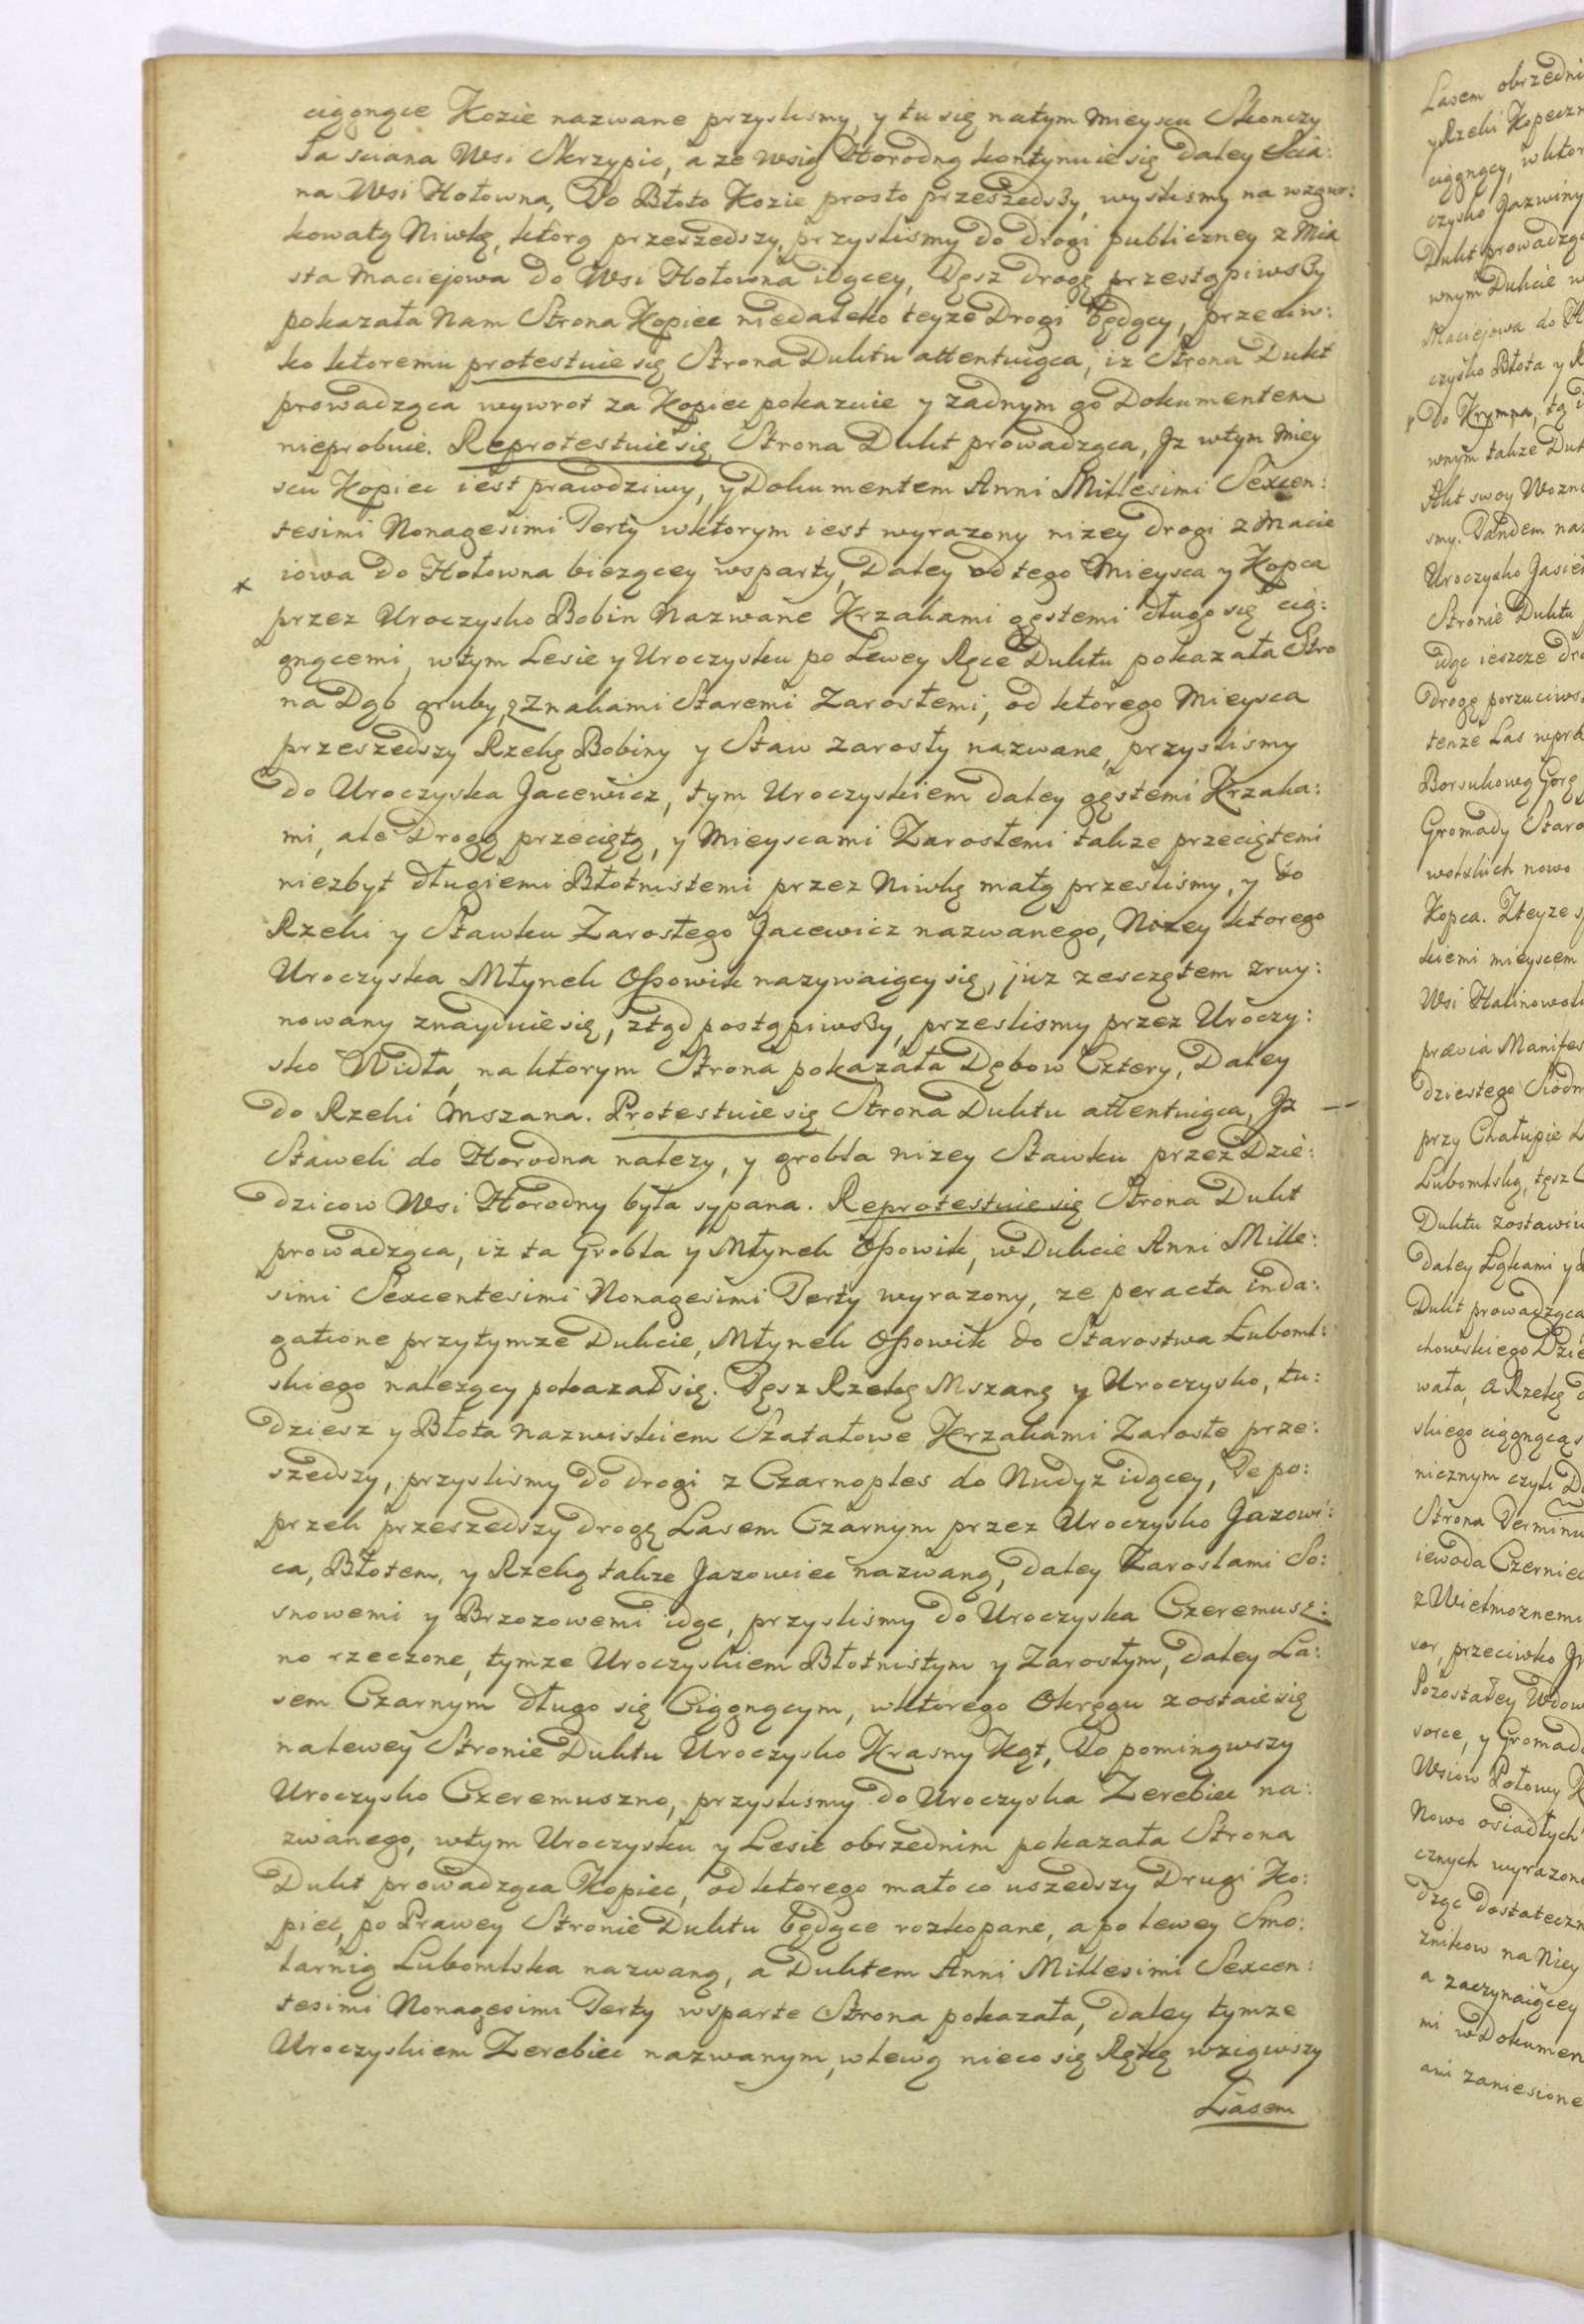 ciągnące Kozie nazwane przyslismy, y tu się natym mieyscu Skonczy
ła sciana Wsi Skrzypic, a ze wsią Horodną kontynuie się daley Scia:
na Wsi Hołowna, To Błoto Kozie prosto przeszedszy, wyslismy na wzgur:
kowatą Niwkę, ktorą przeszedszy, przyslismy do drogi publiczney z Mia
sta Maciejowa do Wsi Hołowna idącey, Tęsz drogę przestąpiwszy
pokazała Nam Strona Kopiec niedaleko teyze Drogi będący, przeciw:
ko ktoremu protestuie się Strona Duktu attentuiąca, iz Strona Dukt
prowadząca wywrot za Kopiec pokazuie y zadnym go Dokumentem
nieprobuie. Reprotestuie się Strona Dukt prowadząca, Jz wtym Miey
scu Kopiec iest prawdziwy, y Dokumentem Anni Millesimi Sexcen:
tesimi Nonagesimi Tertÿ wktorym iest wyrazony nizey drogi z Macie
iowa do Hołowna biezącey wsparty, Daley od tego Mieysca y Kopca
przez Uroczysko Bobin Nazwane Krzakami gęstemi długo się cią:
gnącemi, wtym Lesie y Uroczysku po Lewey Ręce Duktu pokazała Stro
na Dąb gruby, z Znakami Staremi Zarosłemi, od ktorego Mieysca
przeszedszy Rzekę Bobiny y Staw zarosły nazwane, przyslismy
do Uroczyska Jacewicz, tym Uroczyskiem daley gęstemi Krzaka:
mi, ale Drogą przeciętą, y Mieyscami Zarosłemi takze przeciętemi
niezbyt długiemi Błotnistemi przez Niwkę małą przeslismy, y do
Rzeki y Stawku Zarosłego Jacewicz nazwanego, Nizey ktorego
Uroczyska Młynek Ossowik nazywaiący się, juz zesczętem zruy:
nowany znayduie się, ztąd postąpiwszy, przeslismy przez Uroczy:
sko Widła, na ktorym Strona pokazała Dębow Cztery, Daley
do Rzeki Mszana. Protestuie się Strona Duktu attentuiąca, Jz —
Stawek do Horodna nalezy, y grobla nizey Stawku przez Dzie:
dzicow Wsi Horodny była sypana. Reprotestuie się Strona Dukt
prowadząca, iz ta Grobla y Młynek Ossowik, w Dukcie Anni Mille:
simi Sexcentesimi Nonagesimi Tertÿ wyrazony, ze peracta inda:
gatione przytymze Dukcie, Młynek Ossowik do Starostwa Luboml:
skiego nalezący pokazał się. Tęsz Rzekę Mszaną y Uroczysko, tu:
dziesz y Błota Nazwiskiem Szatałowe Krzakami Zarosłe prze:
szedszy, przyslismy do drogi z Czarnoples do Nudyz idącey, Te po:
przek przeszedszy drogę Lasem Czarnym przez Uroczysko Jazowi:
ca, Błotem, y Rzeką takze Jazowiec nazwaną, daley Zaroslami So:
snowemi y Brzozowemi idąc, przyslismy do Uroczyska Czeremusz:
no rzeczone, tymze Uroczyskiem Błotnistym y Zarosłym, daley La:
sem Czarnym długo się Ciągnącym, wktorego Okręgu zostaie się
nalewey Stronie Duktu Uroczysko Krasny Kąt, To pominąwszy
Uroczysko Czeremuszno, przyslismy do Uroczyska Zerebiec na:
zwanego, wtym Uroczysku y Lesie obrzednim pokazała Strona
Dukt prowadząca Kopiec, od ktorego mało co uszedszy Drugi Ko:
piec, po Prawey Stronie Duktu będące rozkopane, a po lewey Smo:
larnią Lubomlska nazwaną, a Duktem Anni Millesimi Sexcen:
tesimi Nonagesimi Tertÿ wsparte Strona pokazała, daley tymze
Uroczyskiem Zerebiec nazwanym, wlewą nieco się Rękę wziąwszy
Lasem
Lasem obrzedni
y Rzeki Kopeczn
ciągnący, wktor
czysko Jazwiny
Dukt prowadzą
wnym Dukcie w
Maciejowa do H
czysko Błota y R
do Krzmpa, tą i
wnym takze Duk
Akt swoy Wozn
smy. Tandem na
Uroczysko Jasie
Stronie Duktu
idąc ieszcze dro
drogę porzuciws
tenze Las wpra
Borsukową Gorę
Gromady Staro
wolskich nowo
Kopca. Zteyze s
kiemi mieyscem
Wsi Halinowol
prævia Manifes
dziestego Siódm
przy Chałupie L
Lubomlską, tęsz
Duktu zostawiu
daley Łąkami y
Dukt prowadząca
chowskiego Dzie
wała, a Rzekę
skiego ciągnącą s
nicznym czyli D
Strona Terminu
iewoda Czerniec
z Wielmoznemi
sor, przeciwko
Pozostałey Wdow
sorce, y Gromad
Wsiow Połowy
Nowo osiadłych
cznych wyrazon
dząc dostateczn
znikow na Niey
a zaczynaiącey
mi w Dokumen
ani zaniesione